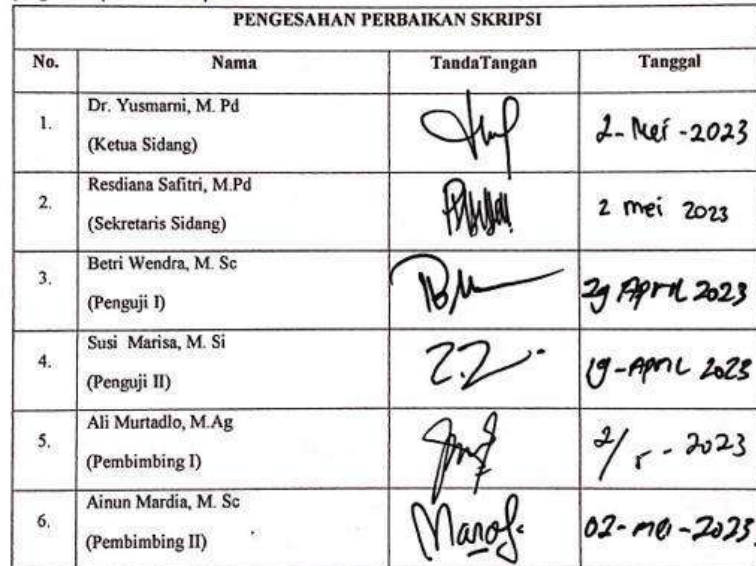 PENGESAHAN PERBAIKAN SKRIPSI
No. Nama TandaTangan Tanggal
1. Dr. Yusmarni, M. Pd
(Ketua Sidang)
2- Mei -2023
2. Resdiana Safitri, M.Pd
(Sekretaris Sidang)
2 mei 2023
3. Betri Wendra, M. Sc
(Penguji I)
29 April 2023
4. Susi Marisa, M. Si
(Penguji II)
19-April 2023
5. Ali Murtadlo, M.Ag
(Pembimbing I)
2/5 - 2023
6. Ainun Mardia, M. Sc
(Pembimbing II)
02-Mei-2023